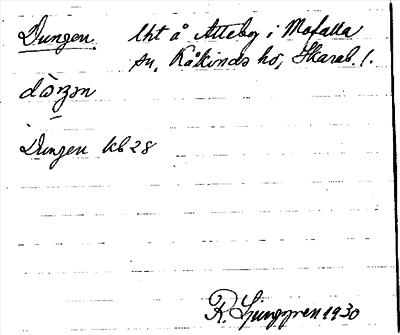 Dungen. Lht å Atteby i Mofalla
sn, Kåkinds hd, Skarab. l.
dòŋən
Dungen kb 28
R. Ljunggren 1930